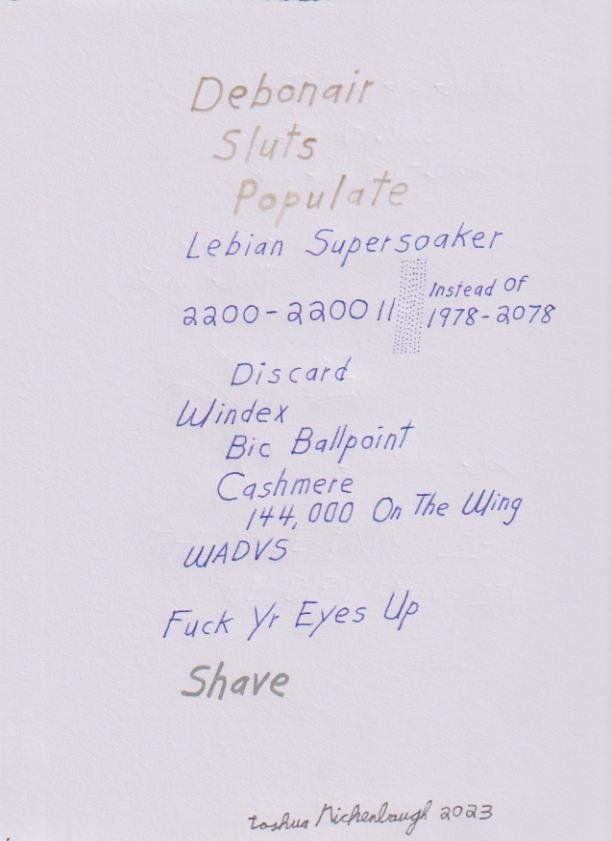 Debonair
Sluts
Populate
Lebian Supersoaker
Instead Of
2200-2200 11 1978-2078
Discard
Windex
Bic Ballpoint
Cashmere
144,000 On The Wing
WADVS
Fuck Yr Eyes Up
Shave
2023